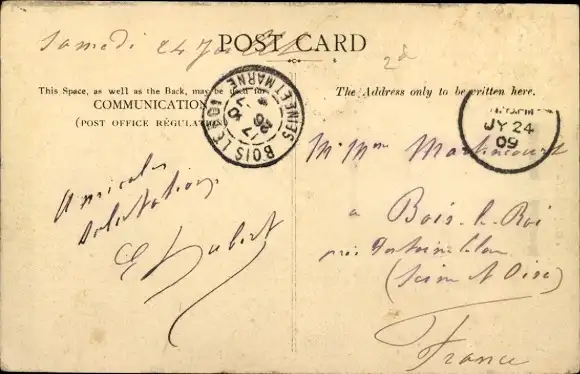 Samedi 24 Juillet
POST CARD
2d
This Space, as well as the Back, may be used for
COMMUNICATION
(POST OFFICE REGULATION
The Address only to be written here.
BOIS LE ROI
SEINE ET MARNE
26
-7
09
JY 24
09
Amicales
Salutations
E Hubert
M. Mme Martincourt
a Bois-le-Roi
près Fontainebleau
(Seine & Oise)
France